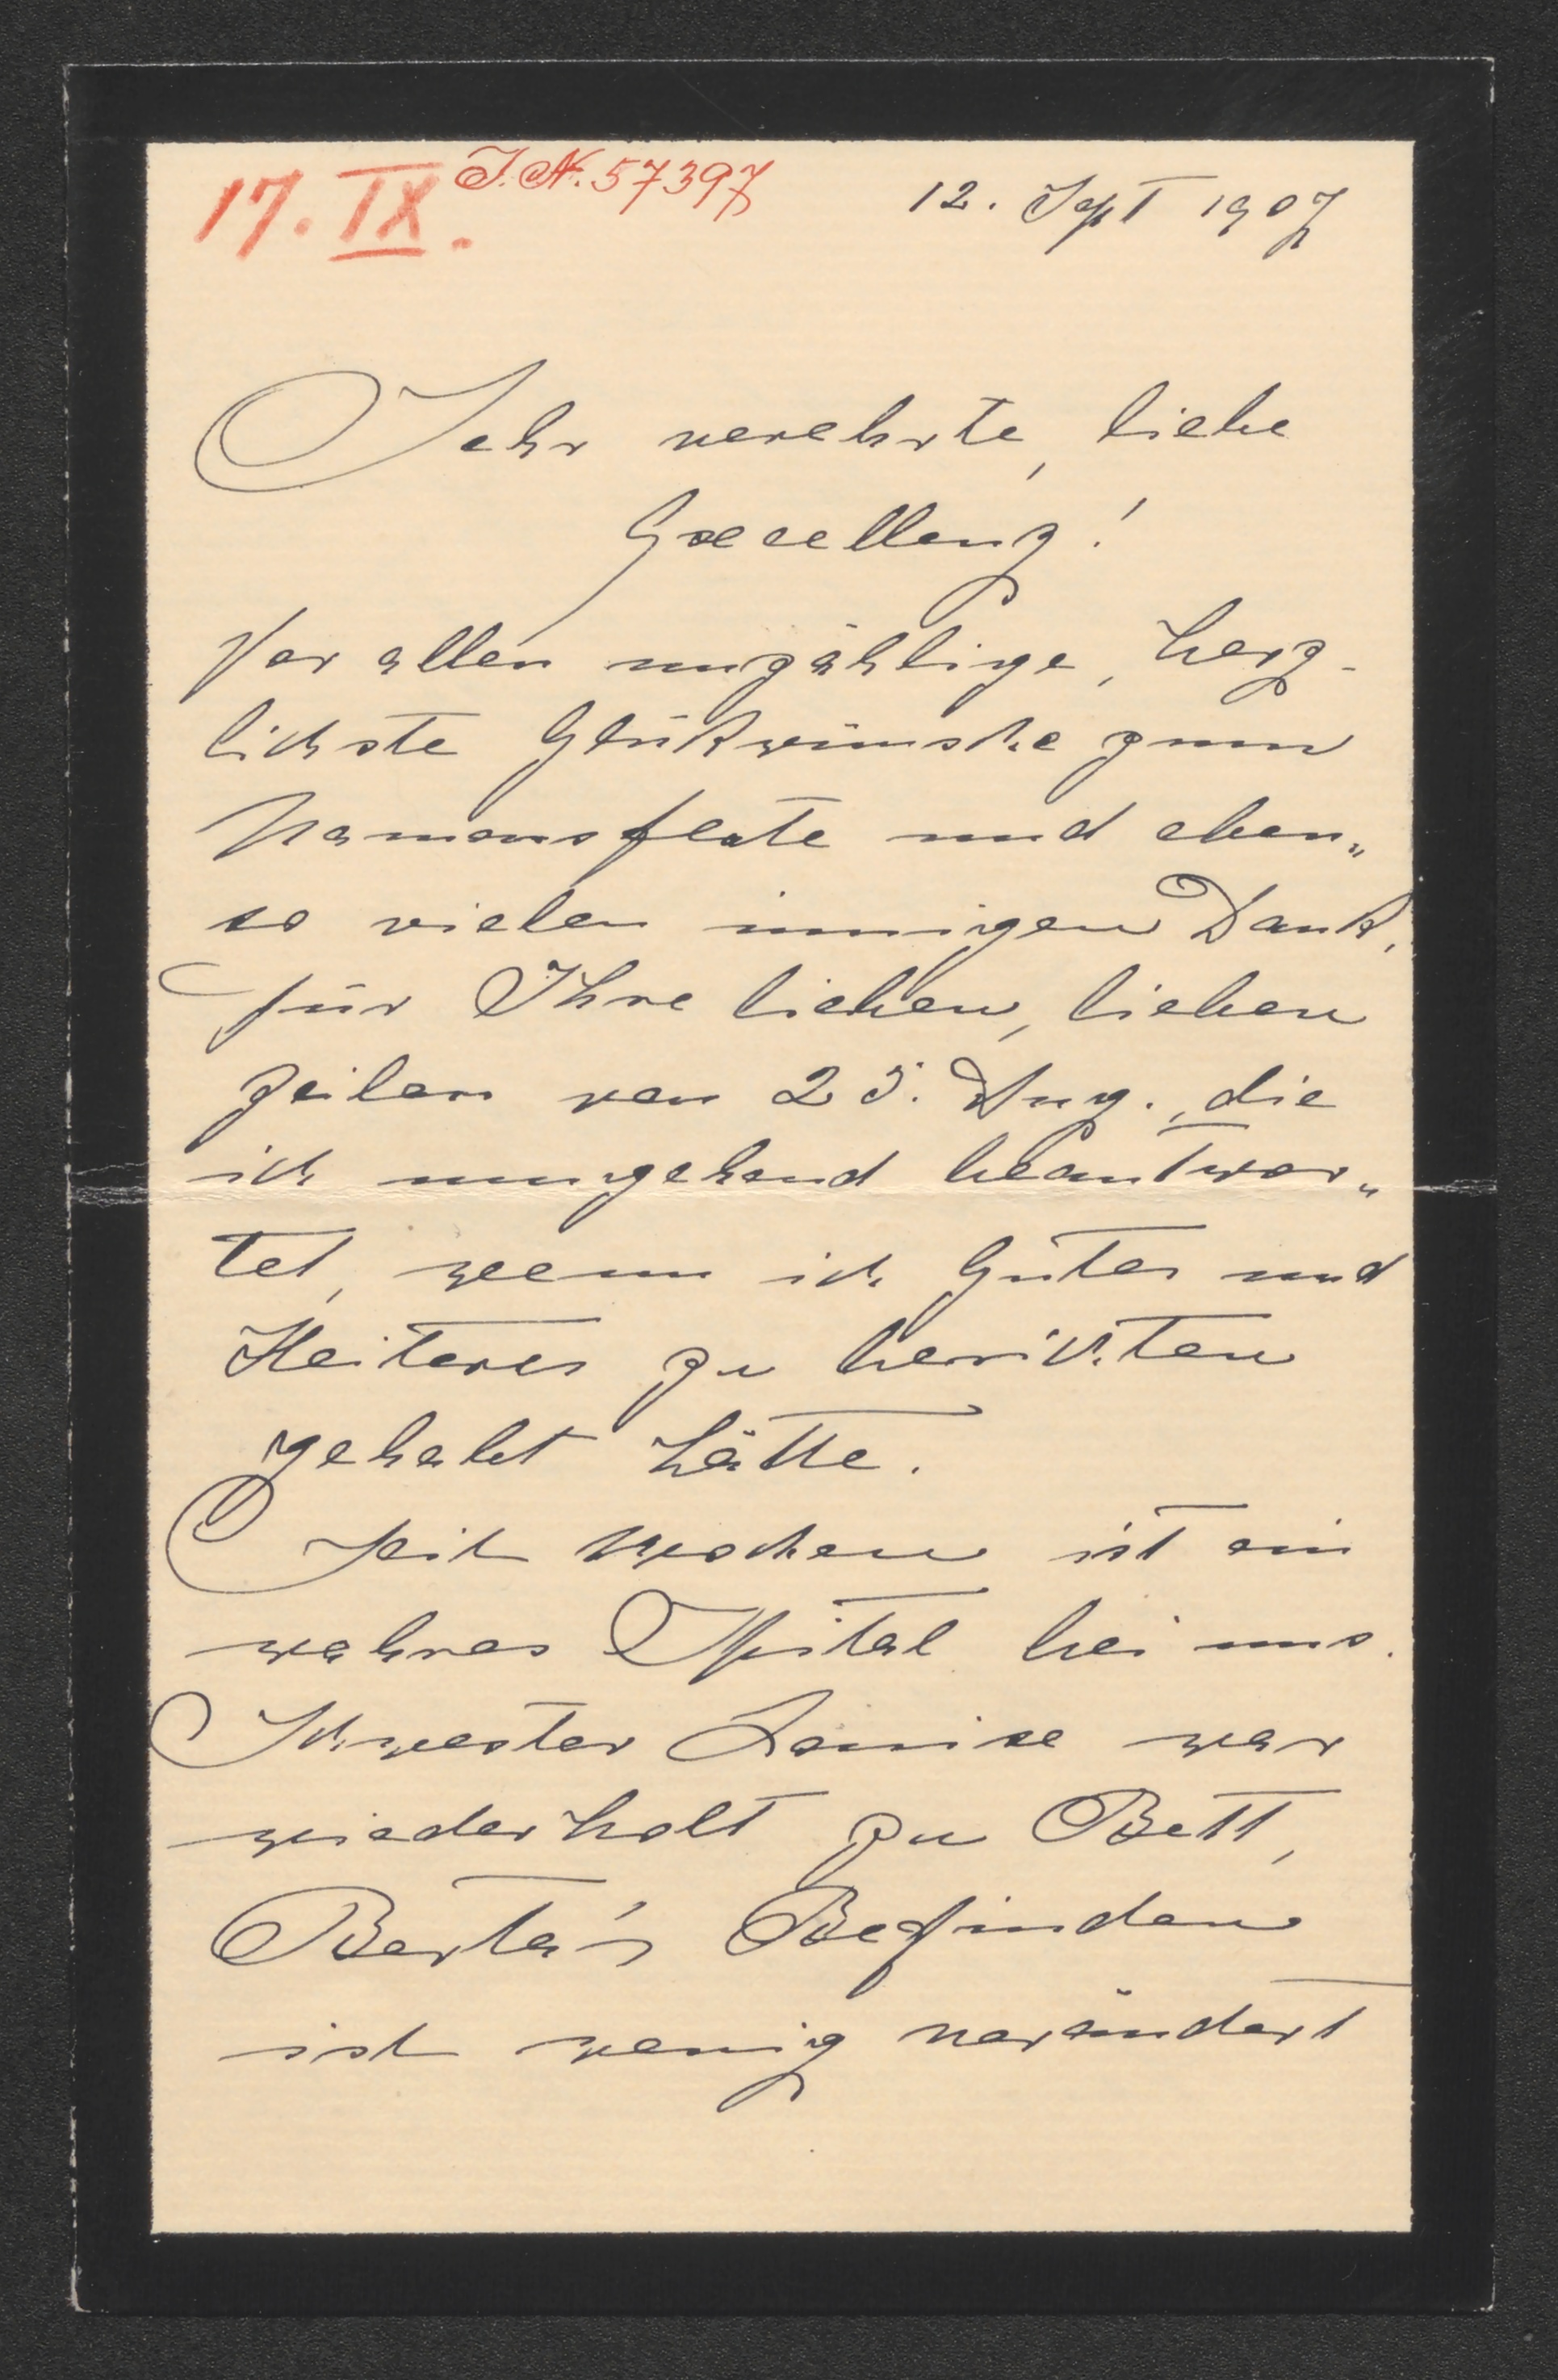 17. IX.
I.N. 57397
12. Sept 1907
Sehr verehrte, liebe
Excellenz!
Vor allen unzählige, herz-
lichste Glükwünsche zum
Namensfeste und eben„
so vielen innigen Dank,
für Ihre lieben, lieben
Zeilen von 25. Aug., die
ich umgehend beantwor„
tet, wenn ich Gutes und
Heiteres zu berichten
gehabt hätte.
Seit Wochen ist ein
wahres Spital bei uns.
Schwester Louise war
wiederholt zu Bett,
Berta's Befinden
ist wenig verändert